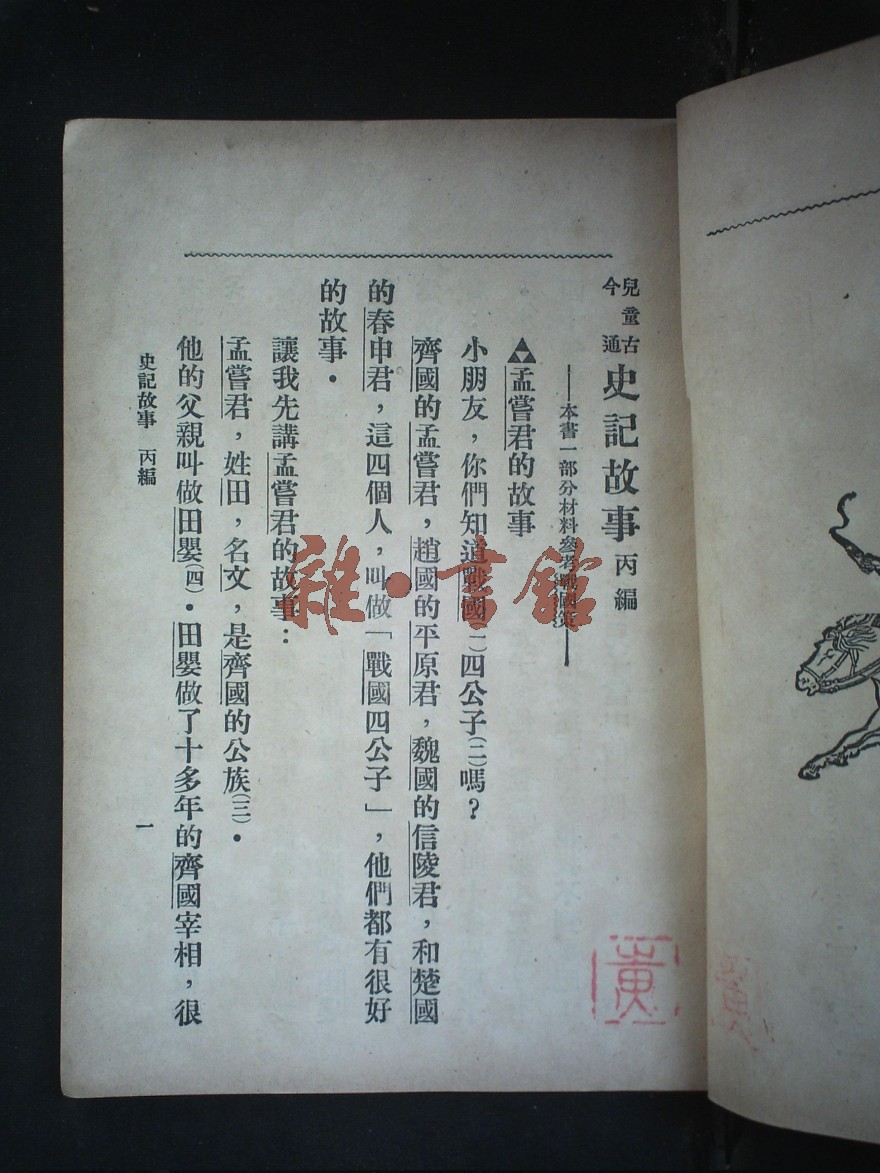 兒童古今通
史記故事 丙編
——本書一部分材料參考戰國策——
孟嘗君的故事
小朋友，你們知道戰國(一)四公子(二)嗎？
齊國的孟嘗君，趙國的平原君，魏國的信陵君，和楚國
的春申君，這四個人，叫做「戰國四公子」，他們都有很好
的故事．
讓我先講孟嘗君的故事：
孟嘗君，姓田，名文，是齊國的公族(三)．
他的父親叫做田嬰(四)．田嬰做了十多年的齊國宰相，很
史記故事 丙編
一
雜·書館
黃